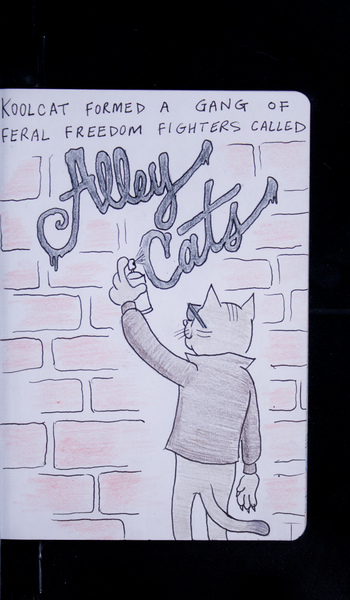 KOOLCAT FORMED A GANG OF
FERAL FREEDOM FIGHTERS CALLED
Alley
Cats